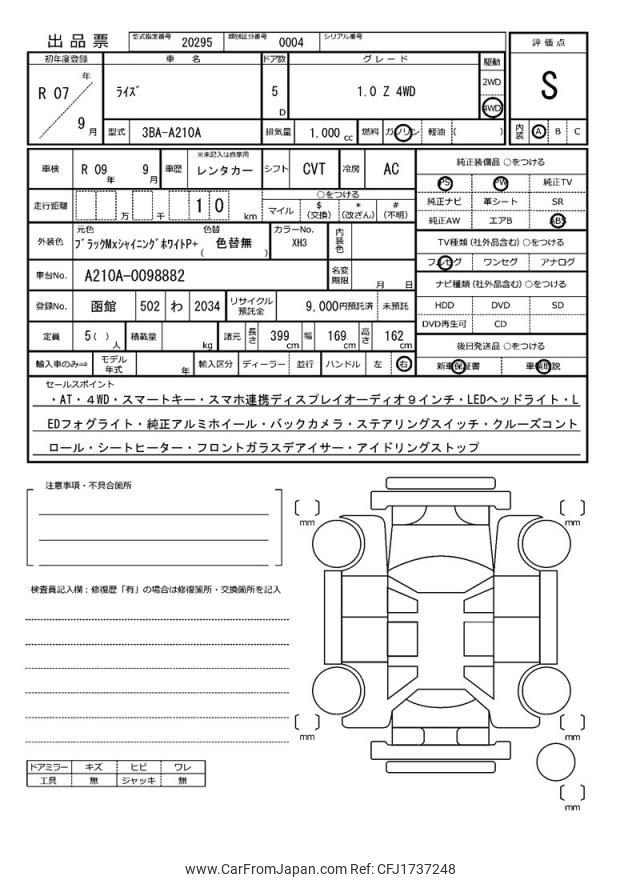 出品票 型式指定番号 20295 類別区分番号 0004 シリアル番号
評価点
S
内装 A B C
初年度登録 車名 ドア数 グレード 駆動
R 07 年 9 月 ﾗｲｽﾞ 5 D 1.0 Z 4WD 2WD 4WD
型式 3BA-A210A 排気量 1.000 cc 燃料 ガソリン 軽油 ( )
車検 R 09 年 9 月 車歴 ※未記入は自家用 レンタカー シフト CVT 冷房 AC
走行距離 万 千 1 0 km ○をつける マイル $ (交換) * (改ざん) # (不明)
外装色 元色 ﾌﾞﾗｯｸMxｼｬｲﾆﾝｸﾞﾎﾜｲﾄP+ 色替 ( 色替無 ) カラーNo. XH3 内装色
車台No. A210A-0098882 名変期限 月 日
登録No. 函館 502 わ 2034 リサイクル預託金 9,000円預託済 未預託
定員 5( ) 人 積載量 kg 諸元 長さ 399 cm 幅 169 cm 高さ 162 cm
輸入車のみ⇒ モデル年式 年 輸入区分 ディーラー 並行 ハンドル 左 右
純正装備品 ○をつける
PS PW 純正TV
純正ナビ 革シート SR
純正AW エアB ABS
TV種類 (社外品含む) ○をつける
フルセグ ワンセグ アナログ
ナビ種類 (社外品含む) ○をつける
HDD DVD SD
DVD再生可 CD
後日発送品 ○をつける
新車保証書 車輌取説
セールスポイント
・AT・4WD・スマートキー・スマホ連携ディスプレイオーディオ９インチ・LEDヘッドライト・L
EDフォグライト・純正アルミホイール・バックカメラ・ステアリングスイッチ・クルーズコント
ロール・シートヒーター・フロントガラスデアイサー・アイドリングストップ
注意事項・不具合箇所
検査員記入欄：修復歴「有」の場合は修復箇所・交換箇所を記入
ドアミラー キズ ヒビ ワレ
工具 無 ジャッキ 無
mm
mm
mm
mm
mm
www.CarFromJapan.com Ref: CFJ1737248